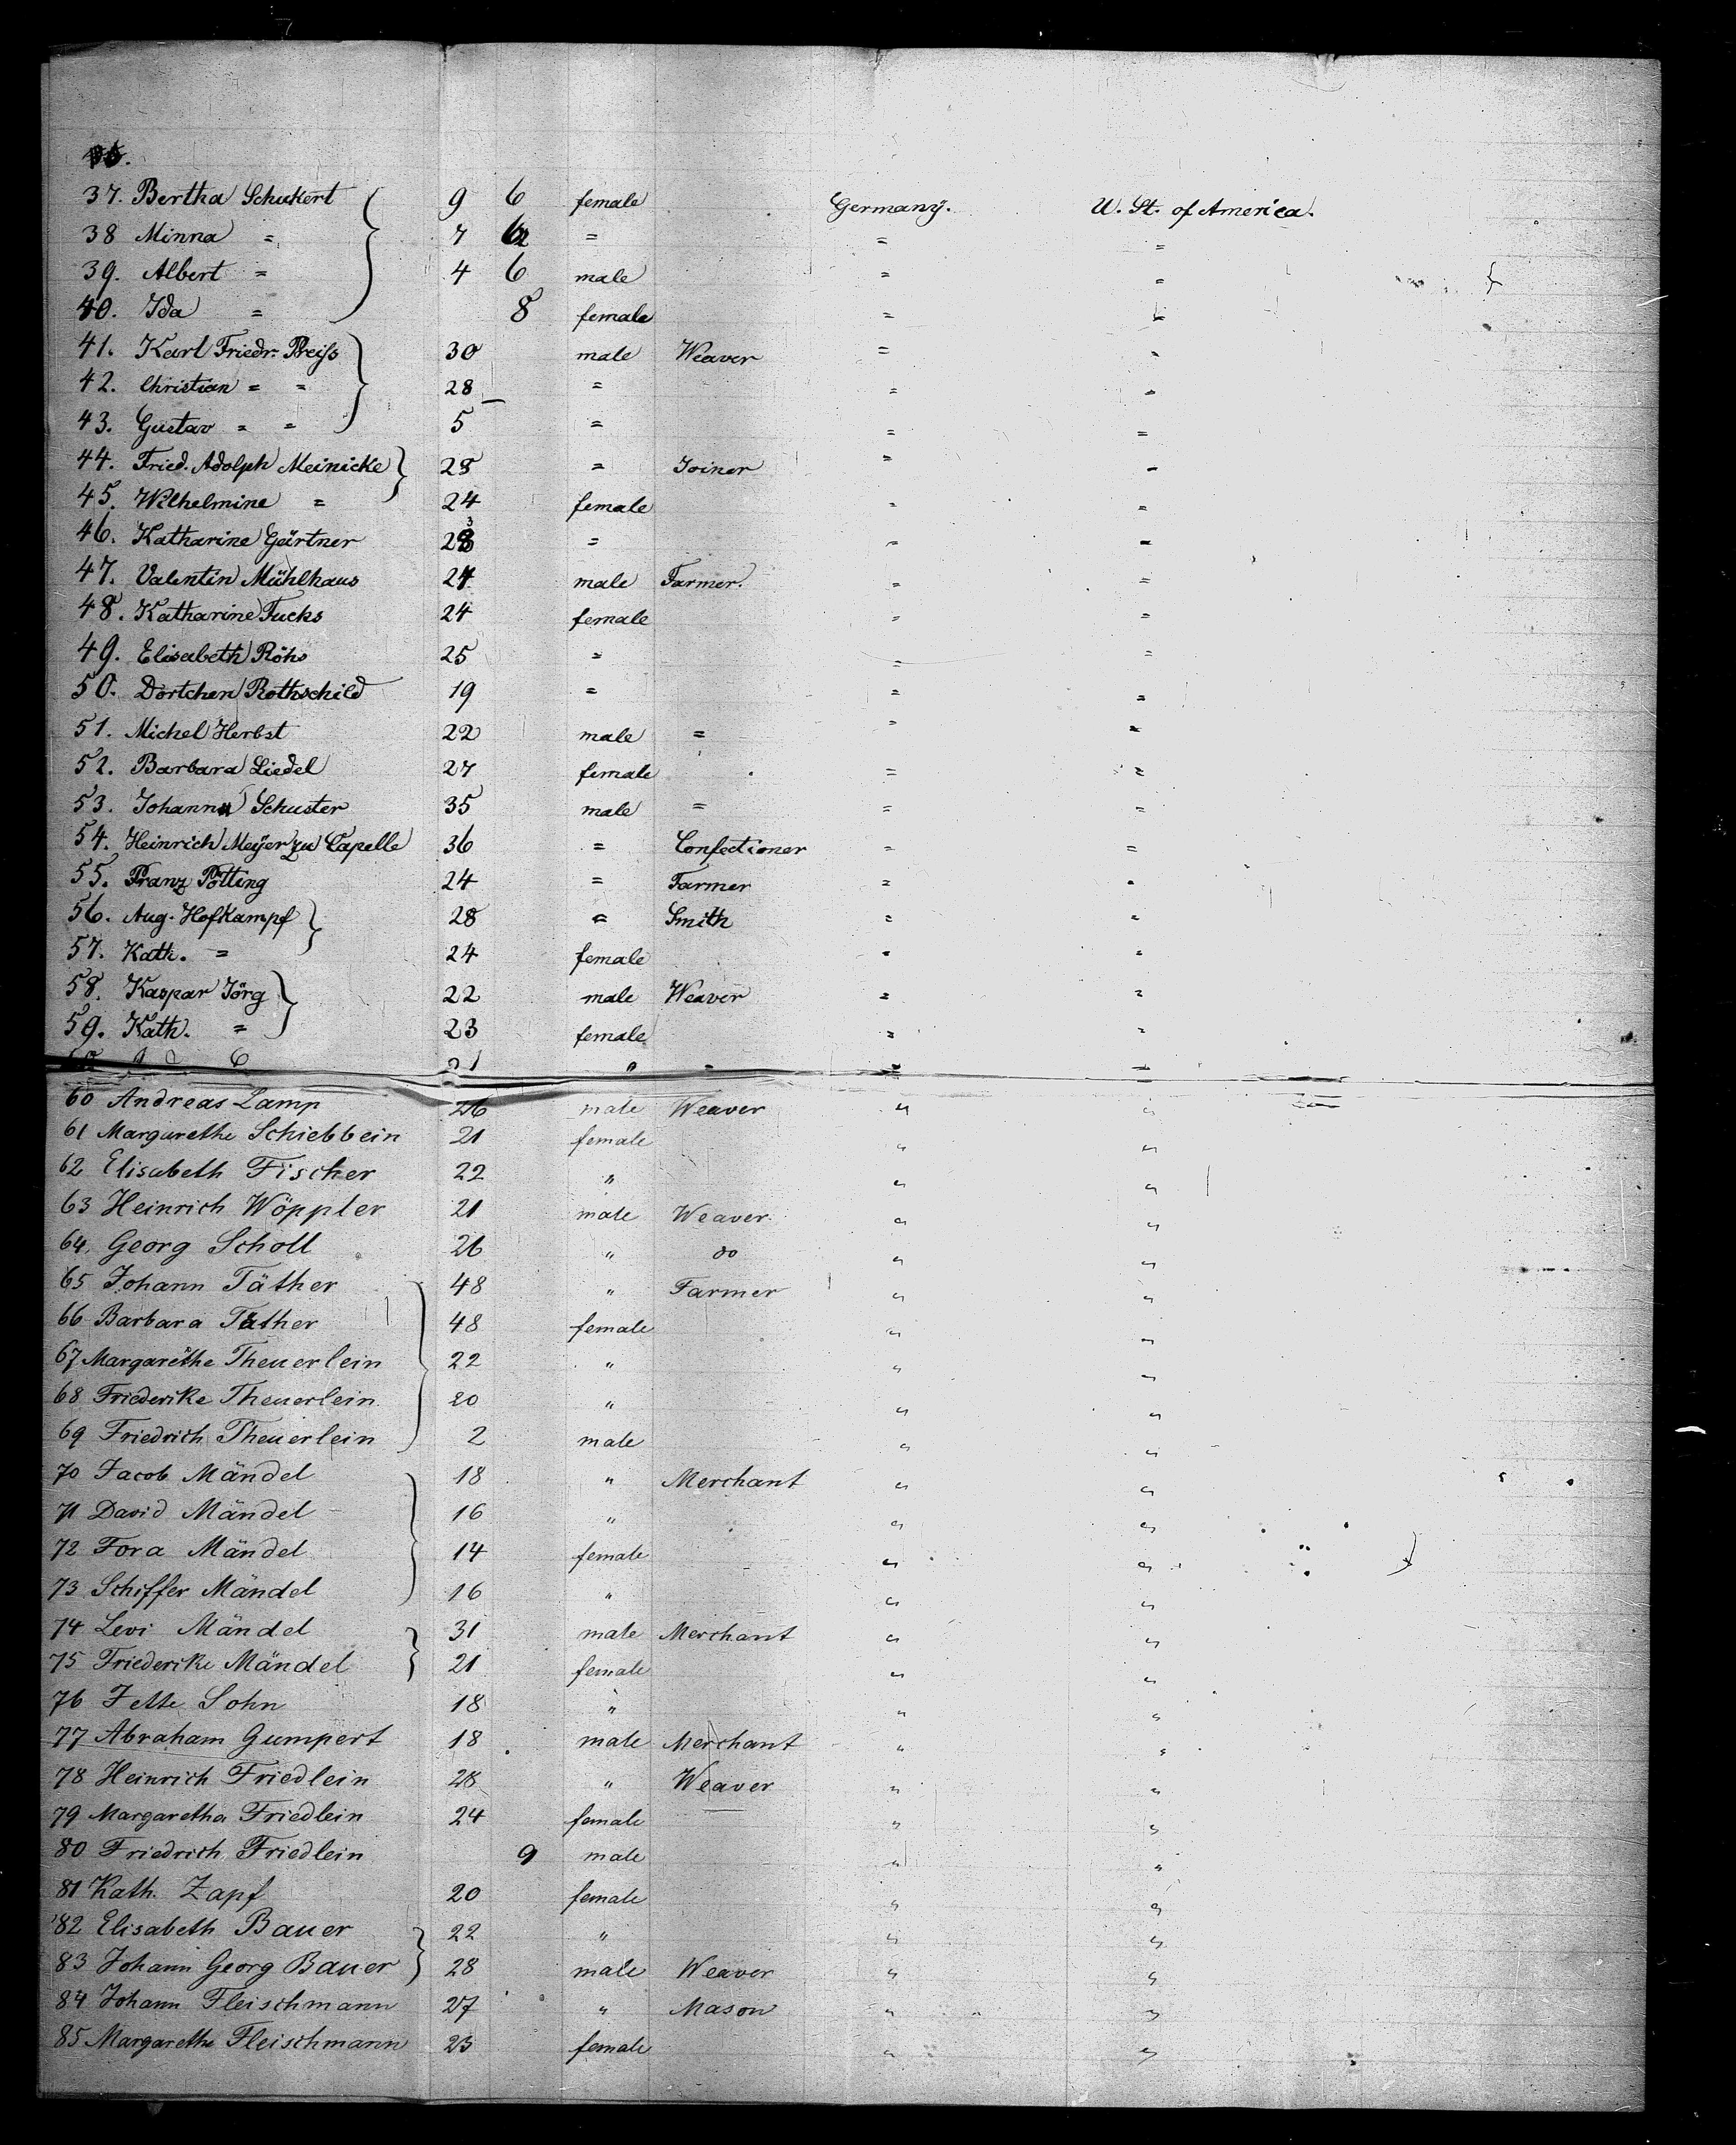 37. Bertha Schukert 9 6 female Germany. U. St. of America.
38 Minna = 7 = = =
39. Albert = 4 6 male = =
40. Ida = 8 female = =
41. Karl Friedr. Preiss 30 male Weaver = =
42. Christian = = 28 = = =
43. Gustav = = 5 = = =
44. Fried. Adolph Meinicke 28 = Joiner = =
45. Wilhelmine = 24 female = =
46. Katharine Gärtner = = =
47. Valentin Mühlhaus 24 male Farmer. = =
48. Katharine Fucks 24 female = =
49. Elisabeth Röhs 25 = = =
50. Dortchen Rothschild 19 = = =
51. Michel Herbst 22 male = = =
52. Barbara Liedel 27 female = =
53. Johann Schuster 35 male = = =
54. Heinrich Meyer zu Capelle 36 = Confectioner = =
55. Franz Pötting 24 = Farmer = =
56. Aug. Hofkampf 28 = Smith = =
57. Kath. = 24 female = =
58. Kaspar Jörg 22 male Weaver = =
59. Kath. = 23 female = =
60 Andreas Lamp 26 male Weaver " "
61 Margarethe Schiebbein 21 female " "
62 Elisabeth Fischer 22 " " "
63 Heinrich Wöppler 21 male Weaver " "
64. Georg Scholl 26 " do " "
65 Johann Täther 48 " Farmer " "
66 Barbara Täther 48 female " "
67 Margarethe Theuerlein 22 " " "
68 Friederike Theuerlein 20 " " "
69 Friedrich Theuerlein 2 male " "
70 Jacob Mändel 18 " Merchant " "
71 David Mändel 16 " " "
72 Fora Mändel 14 female " "
73 Schiffer Mändel 16 " " "
74 Levi Mändel 31 male Merchant " "
75 Friederike Mändel 21 female " "
76 Jette Sohn 18 " " "
77 Abraham Gumpert 18 male Merchant " "
78 Heinrich Friedlein 28 " Weaver " "
79 Margaretha Friedlein 24 female " "
80 Friedrich Friedlein 9 male " "
81 Kath. Zapf 20 female " "
82 Elisabeth Bauer 22 " " "
83 Johann Georg Bauer 28 male Weaver " "
84 Johann Fleischmann 27 " Mason " "
85 Margarethe Fleischmann 23 female " "